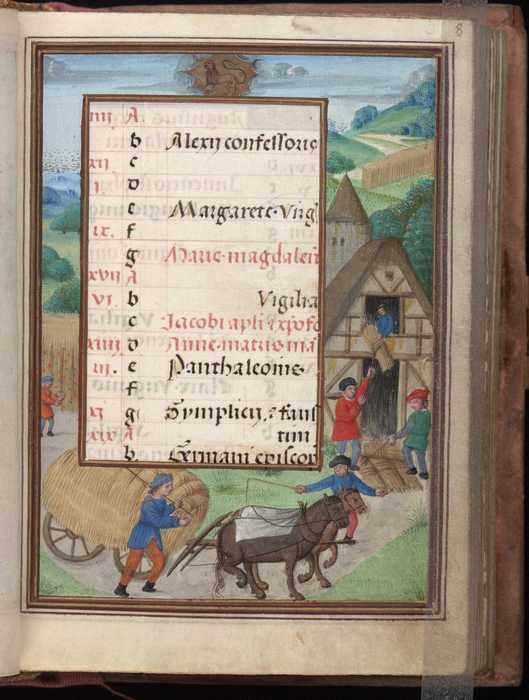 8
iiij. A
b Alexij confessoris
xij c
i. d
e Margarete. Virg
ix. f
g Marie. magdalen
xvij A
vi. b Vigilia
c Jacobi apli z xpofo
xiiij d Anne. matris. ma
iij. e Panthaleonis.
f
xi g Symplicij. z faus
xix A tini
b. Germani episcop